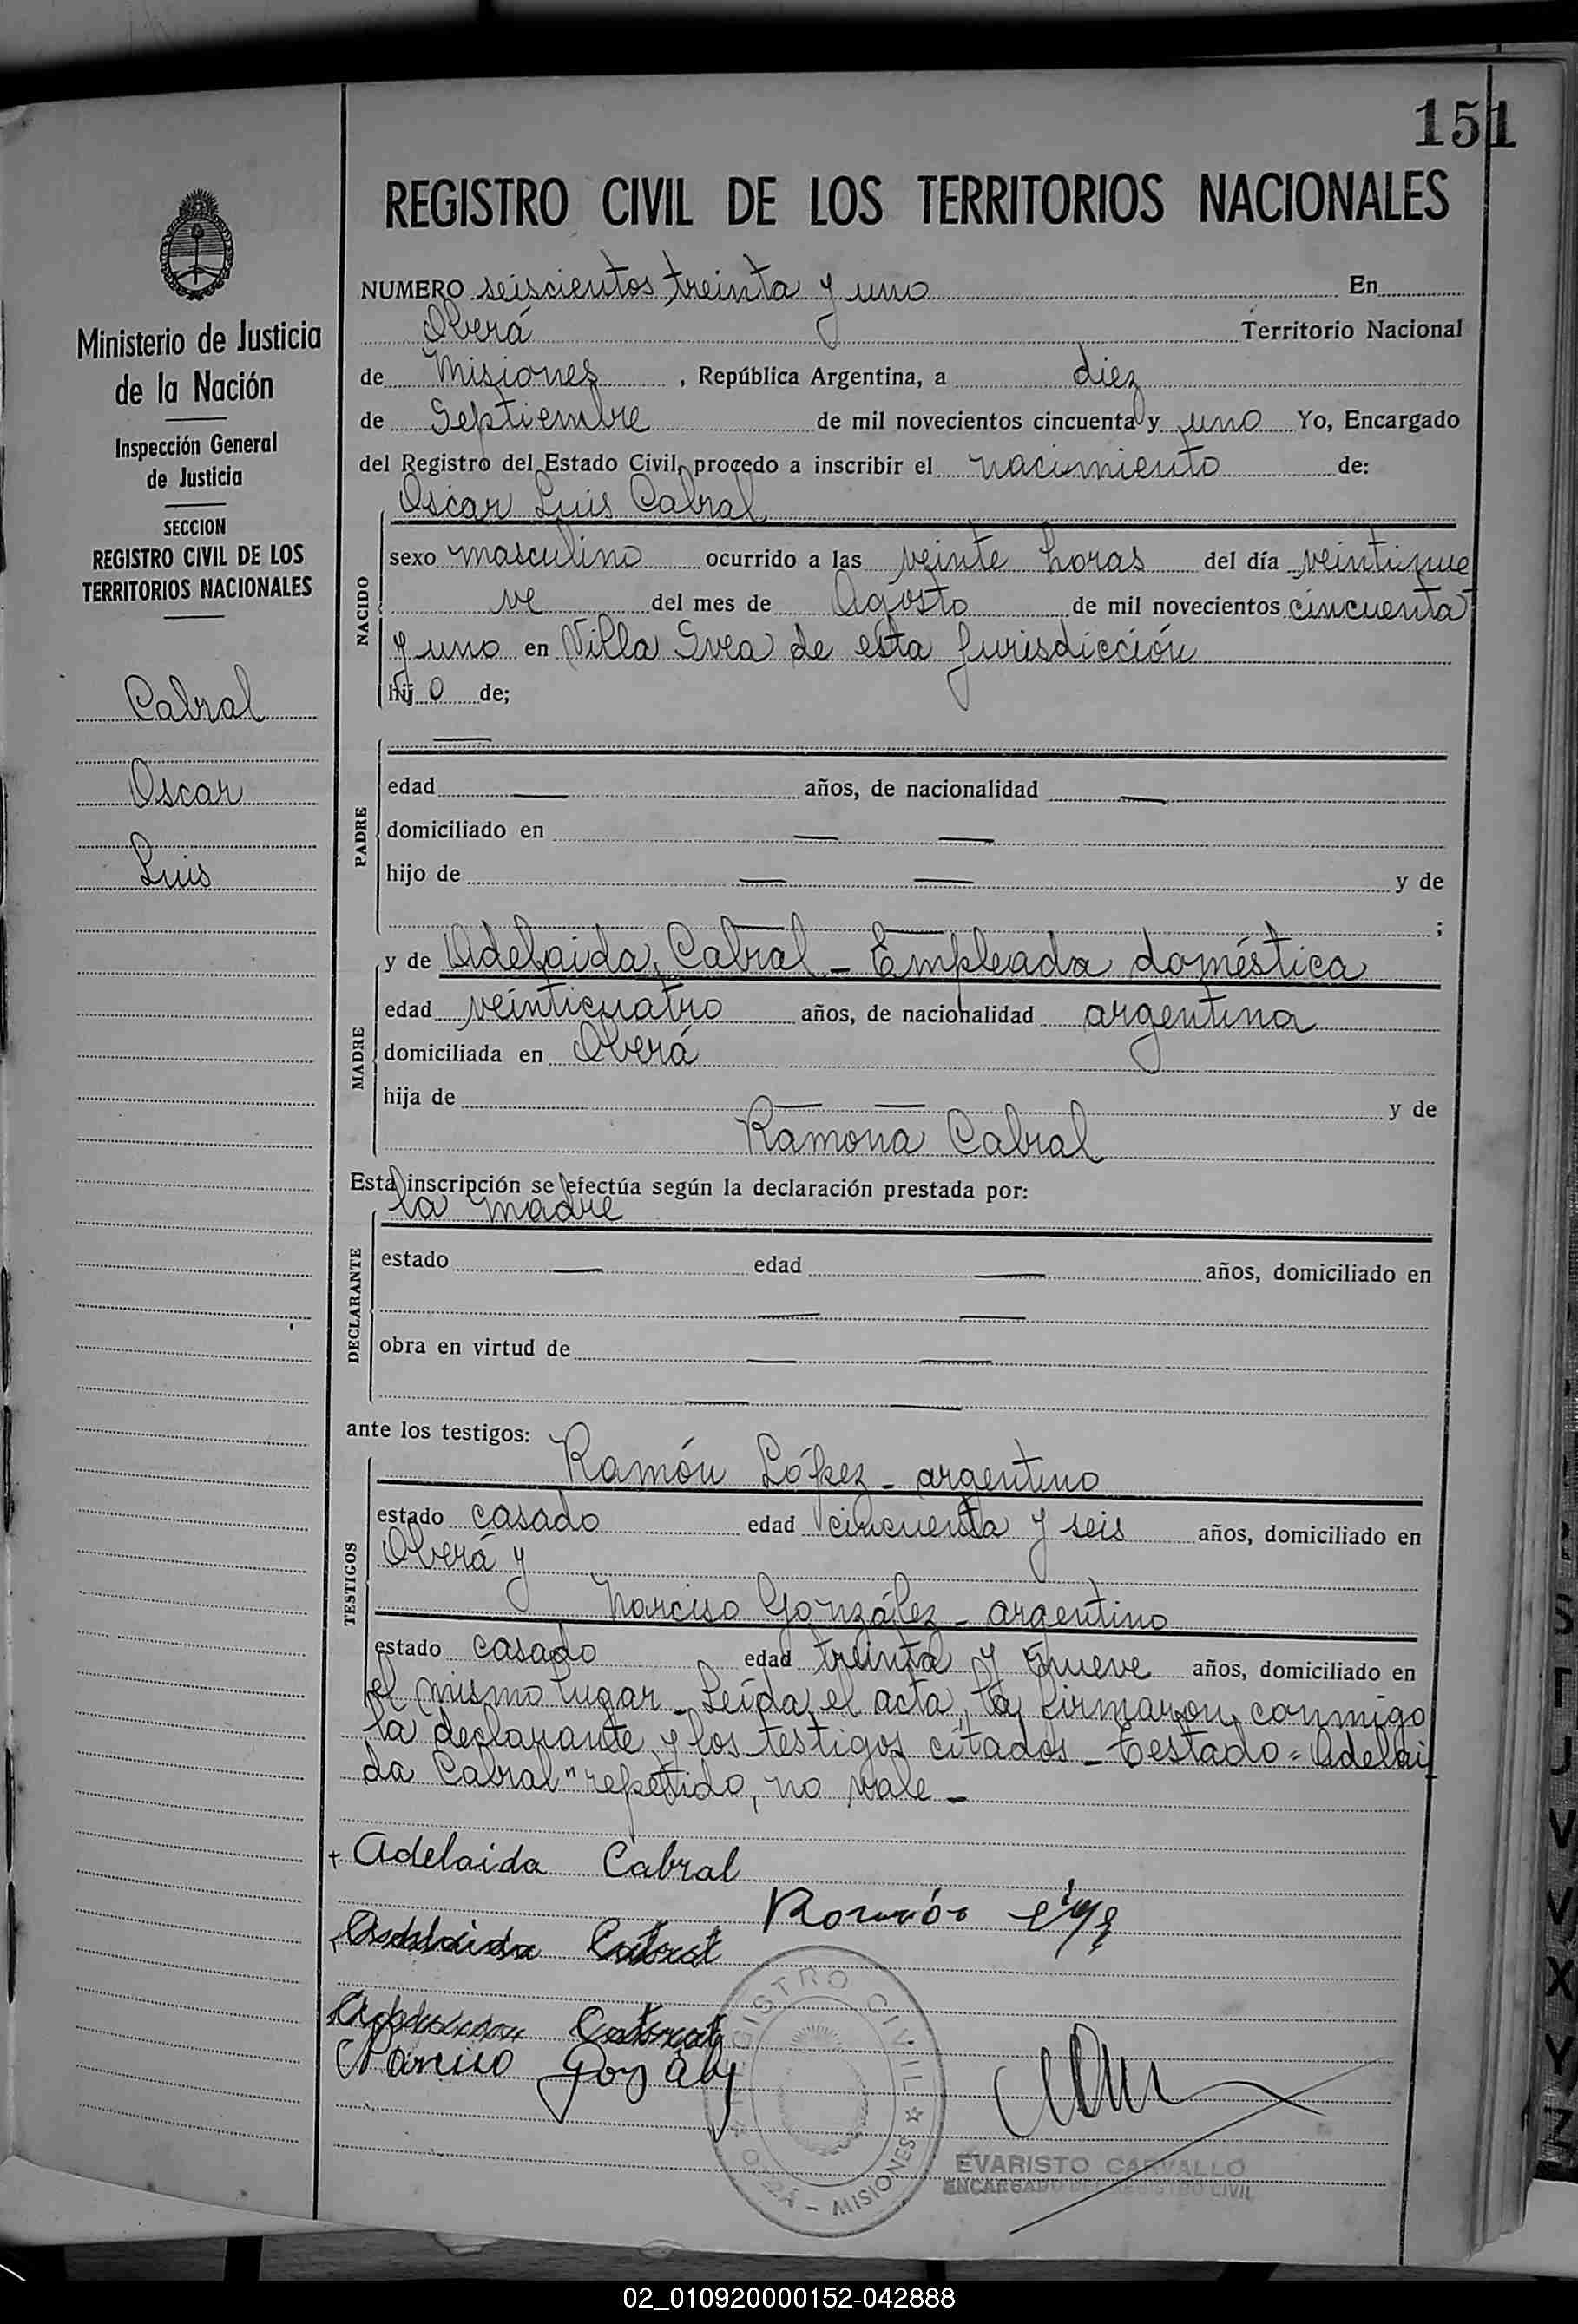 151
REGISTRO CIVIL DE LOS TERRITORIOS NACIONALES
Ministerio de Justicia
de la Nación
Inspección General
de Justicia
SECCION
REGISTRO CIVIL DE LOS
TERRITORIOS NACIONALES
Cabral
Oscar
Luis
NUMERO seiscientos treinta y uno En
Oberá Territorio Nacional
de Misiones, República Argentina, a diez
de Septiembre de mil novecientos cincuenta y uno Yo, Encargado
del Registro del Estado Civil, procedo a inscribir el nacimiento de:
Oscar Luis Cabral
NACIDO
sexo masculino ocurrido a las veinte horas del día veintinue
ve del mes de Agosto de mil novecientos cincuenta
y uno en Villa Svea de esta Jurisdicción
hijo de;
PADRE
edad — años, de nacionalidad —
domiciliado en — —
hijo de — — y de
— — ;
MADRE
y de Adelaida Cabral - Empleada doméstica
edad veinticuatro años, de nacionalidad argentina
domiciliada en Oberá
hija de — — y de
Ramona Cabral
Esta inscripción se efectúa según la declaración prestada por:
la madre
DECLARANTE
estado — edad — años, domiciliado en
— —
obra en virtud de — —
— —
ante los testigos:
Ramón López - argentino
TESTIGOS
estado casado edad cincuenta y seis años, domiciliado en
Oberá y
Narciso González - argentino
estado casado edad treinta y nueve años, domiciliado en
el mismo lugar - Leída el acta, la firmaron conmigo
la declarante y los testigos citados - Testado = Adelai
da Cabral" repetido, no vale -
+ Adelaida Cabral
Ramón
Adelaida Cabral
Cabral
Narciso
REGISTRO CIVIL
OBERÁ - MISIONES
EVARISTO CARVALLO
ENCARGADO DEL REGISTRO CIVIL
S
T
J
V
V
X
Y
Z
02_010920000152-042888